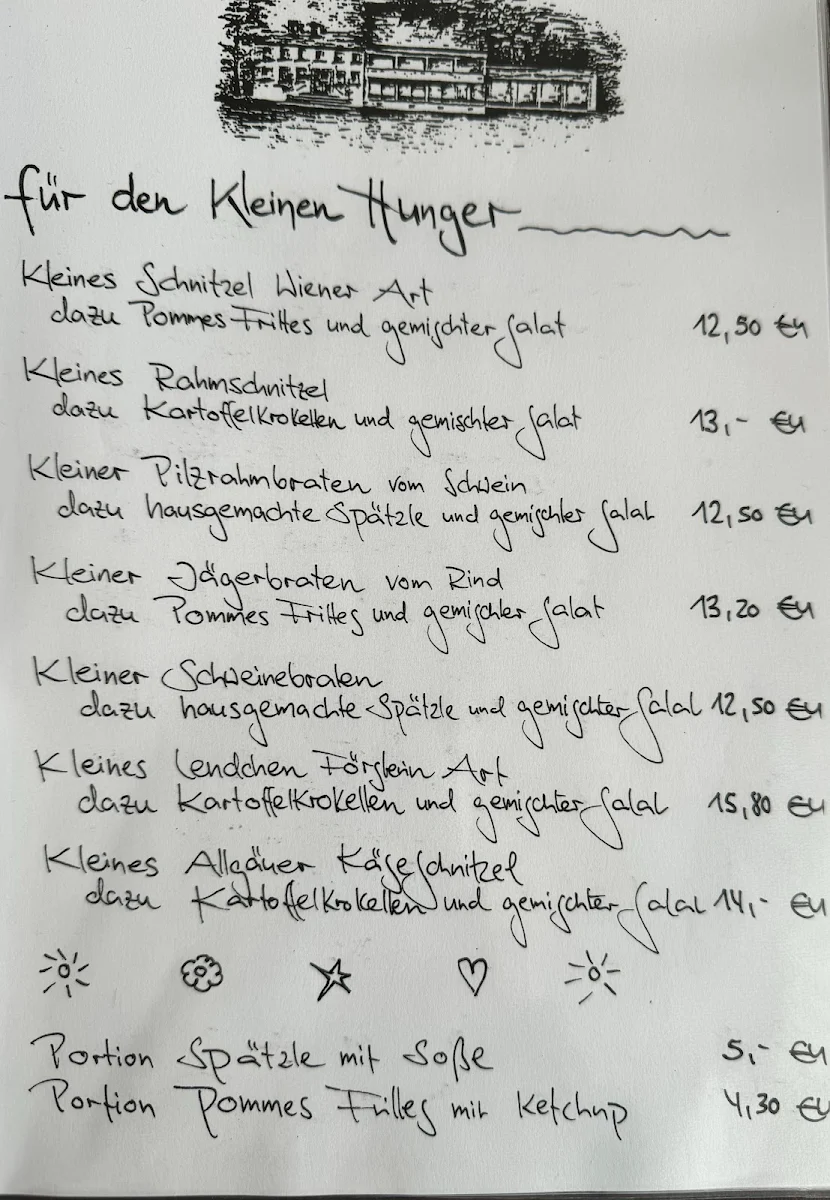 für den Kleinen Hunger
Kleines Schnitzel Wiener Art
dazu Pommes Frittes und gemischter Salat 12,50 €u
Kleines Rahmschnitzel
dazu Kartoffelkroketten und gemischter Salat 13,- €u
Kleiner Pilzrahmbraten vom Schwein
dazu hausgemachte Spätzle und gemischter Salat 12,50 €u
Kleiner Jägerbraten vom Rind
dazu Pommes Frittes und gemischter Salat 13,20 €u
Kleiner Schweinebraten
dazu hausgemachte Spätzle und gemischter Salat 12,50 €u
Kleines Lendchen Försterin Art
dazu Kartoffelkroketten und gemischter Salat 15,80 €u
Kleines Allgäuer Käseschnitzel
dazu Kartoffelkroketten und gemischter Salat 14,- €u
Portion Spätzle mit Soße 5,- €u
Portion Pommes Frittes mit Ketchup 4,30 €u